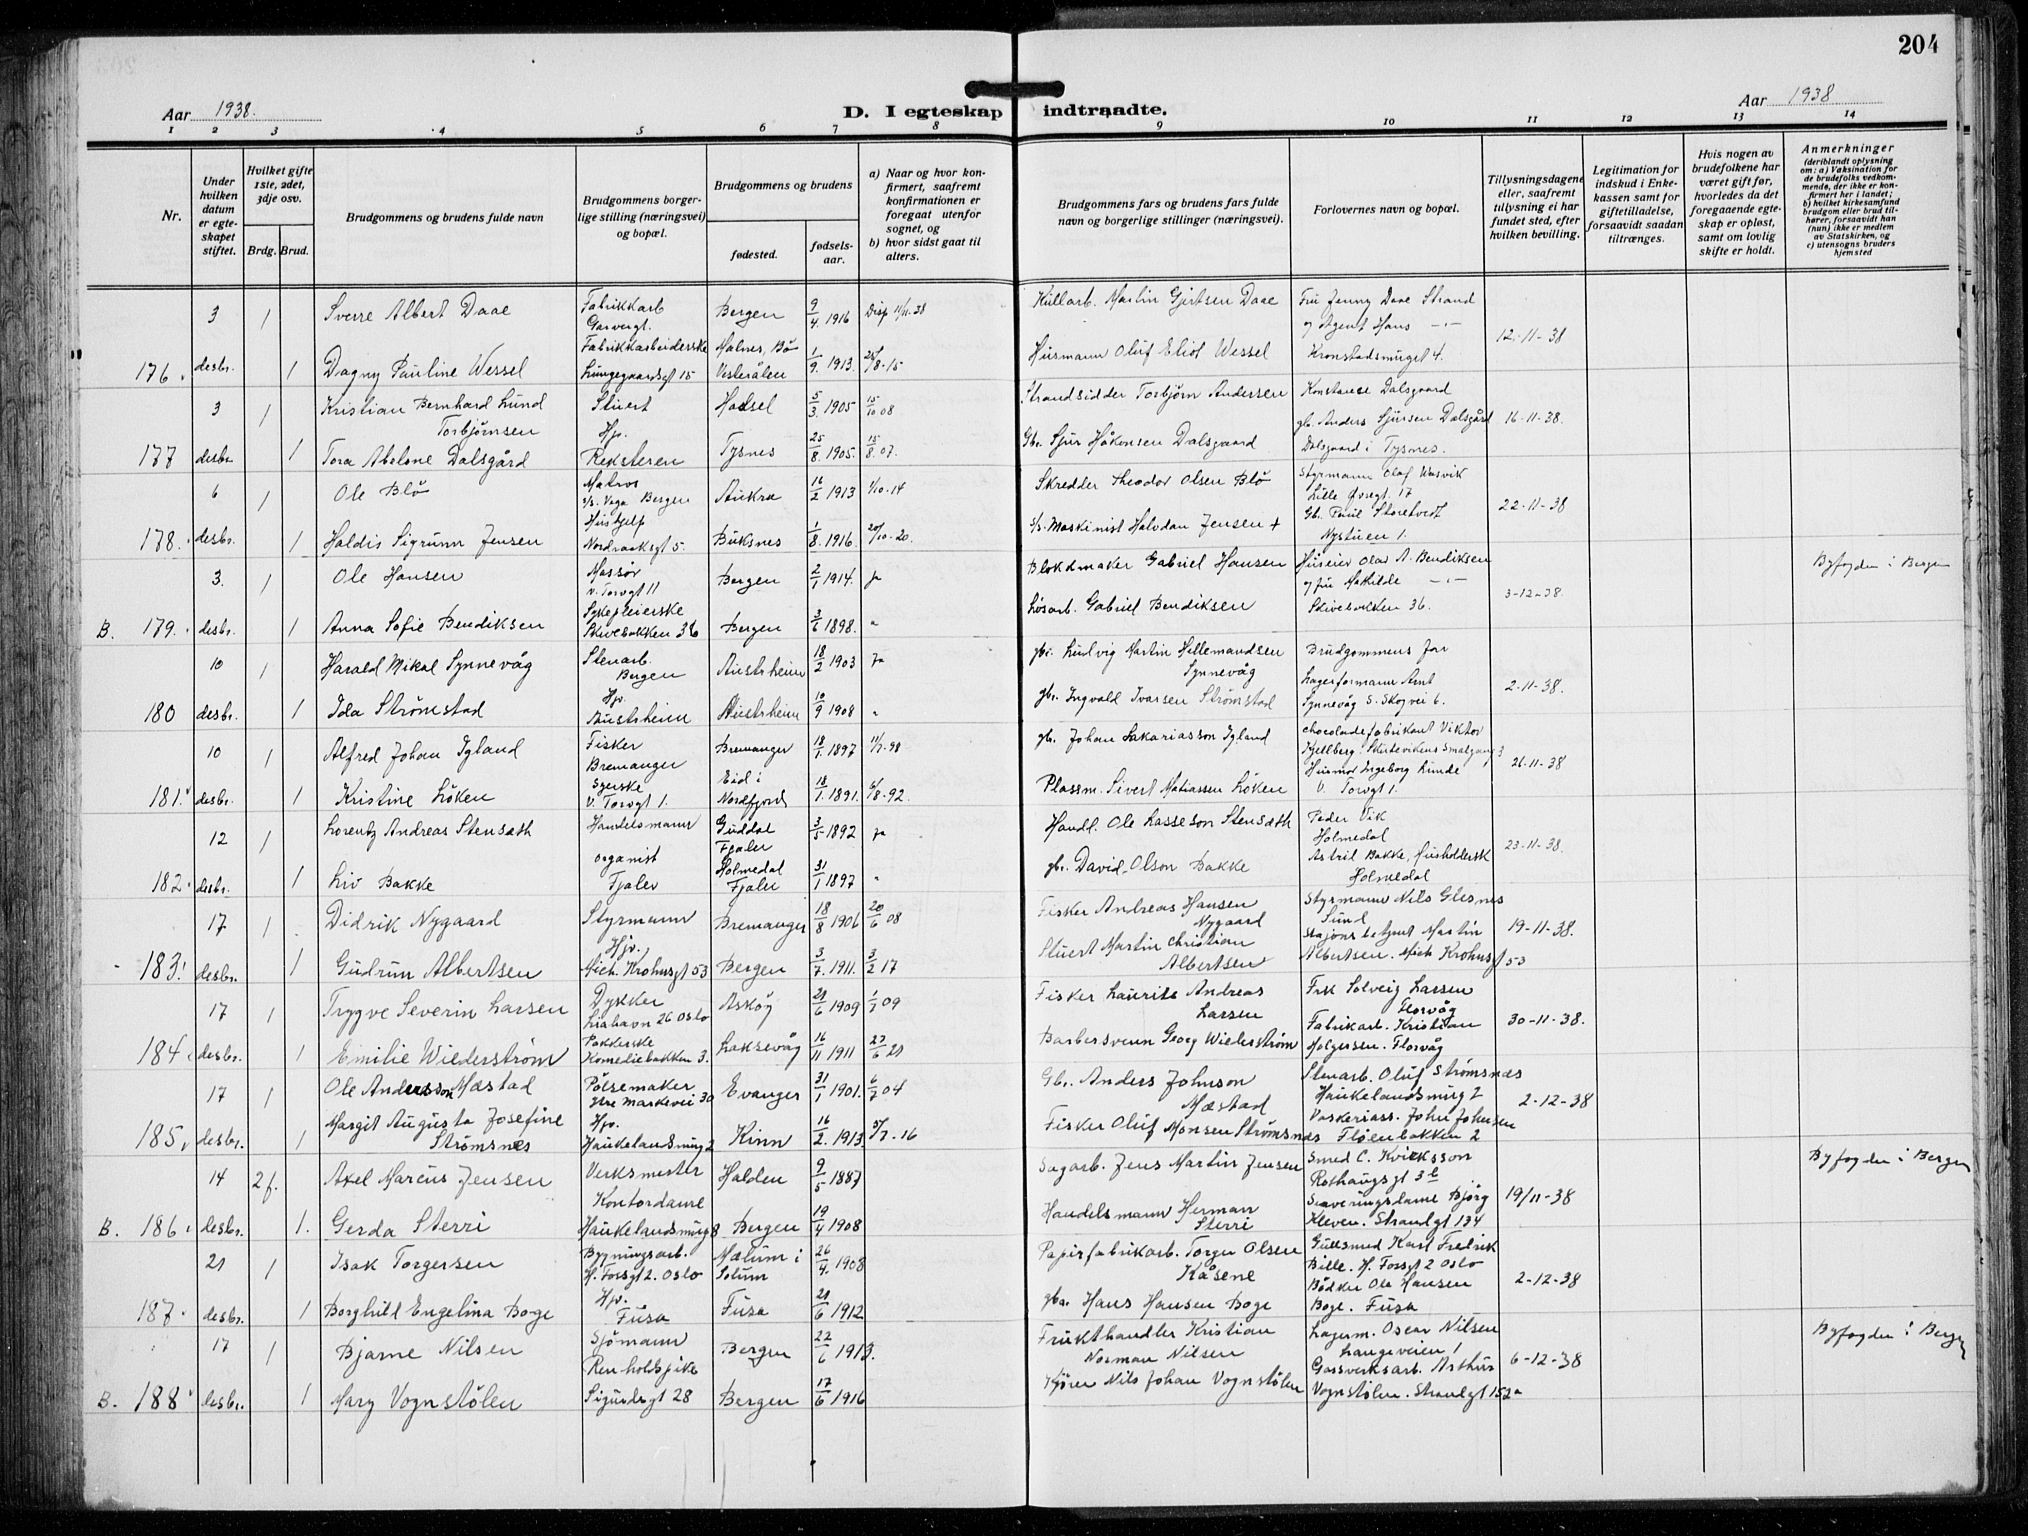 204
Aar 1938.
D. I egteskap indtraadte.
Aar 1938
1 2 3 4 5 6 7 8 9 10 11 12 13 14
Nr.
Under hvilken datum er egteskapet stiftet.
Hvilket gifte 1ste, 2det, 3dje osv.
Brdg. Brud.
Brudgommens og brudens fulde navn
Brudgommens borgerlige stilling (næringsvei) og bopæl.
Brudgommens og brudens
fødested.
fødselsaar.
a) Naar og hvor konfirmert, saafremt konfirmationen er foregaat utenfor sognet, og
b) hvor sidst gaat til alters.
Brudgommens fars og brudens fars fulde navn og borgerlige stillinger (næringsvei).
Forlovernes navn og bopæl.
Tillysningsdagene eller, saafremt tillysning ei har fundet sted, efter hvilken bevilling.
Legitimation for indskud i Enkekassen samt for giftetilladelse, forsaavidt saadan tiltrænges.
Hvis nogen av brudefolkene har været gift før, hvorledes da det foregaaende egteskap er opløst, samt om lovlig skifte er holdt.
Anmerkninger
(deriblandt oplysning om: a) Vaksination for de brudefolks vedkommende, der ikke er konfirmert her i landet; b) hvilket kirkesamfund brudgom eller brud tilhører, forsaavidt han (hun) ikke er medlem av Statskirken, og c) utensogns bruders hjemsted
3 1 Sverre Albert Daae Fabrikkarb Bergen 9/4 1916 Disp 11/11-38 Martin Gjertsen Daae Fru Jenny Daae Strand
og Agent Hans -"- 12-11-38
176. desbr. 1 Dagny Pauline Wessel Fabrikkarbeiderske Lungegaardsgt 15 Malnes, Bø Vesterålen 1/9 1913. 8-15 Husmann Oluf Eliot Wessel Kronstadsmuget 4.
3 1 Kristian Bernhard Lund Torbjørnsen Stuert Hadsel 5/3 1905 15/10 08 Strandsidder Torbjørn Andersen Konstanse Dalsgaard
gb. Anders Sjursen Dalsgård 16-11-38.
177 desbr. 1 Tora Abelone Dalsgård Hjv. Reksteren Tysnes 25/8 1905. 15/8 07. Gbr. Sjur Håkonsen Dalsgaard Dalsgaard i Tysnes.
6 1 Ole Blø Matros s/s. Vega Bergen Aukra 16/2 1913 1/10-14 Skredder Theodor Olsen Blø Styrmann Olaf Wasvik
Lille Øvregt. 17 22-11-38
178. desbr. 1 Haldis Sigrunn Jensen Hushjelp Nordraaksgt 5. Buksnes 1/8 1916. 20/10-20. Maskinist Halvdan Jensen + Gb. Paul Storetvedt
Nystuen 1.
3. 1 Ole Hansen Massør v. Torvgt 11 Bergen 2/1 1914. ja Blokkmaker Gabriel Hansen Huseier Olav A. Bendiksen Byfogden i Bergen
og fru Mathilde -"- 3-12-38.
B. 179. desbr. 1 Anna Sofie Bendiksen Sykepleierske Skivebakken 36 Bergen 3/6 1898. " Løsarb. Gabriel Bendiksen Skivebakken 36.
10 1 Harald Mikal Synnevåg Stenarb. Bergen Austrheim 18/2 1903 ja gbr. Ludvig Martin Hillemandsen Synnevåg Brudgommens far
Lagerformann Arnt 2-11-38.
180 desbr. 1 Ida Strømstad Hjv. Austrheim Austrheim 10/9 1908 " gbr. Ingvald Ivarsen Strømstad Synnevåg S. Skogvei 6.
10 1 Alfred Johan Igland Fisker Bremanger Bremanger 18/1 1897 11/7-98 gb. Johan Sakariasson Igland Chocoladefabrikant Viktor
Kjellberg. Skutevikens Smalgang 3 26-11-38
181. desbr. 1 Kristine Løken Syerske V. Torvgt 1. Eid i Nordfjord 18/1 1891. 6/8-92. Plassm. Sivert Matiassen Løken Husmor Ingeborg Lunde
V. Torvgt 1.
12 1 Lorentz Andreas Stensæth Handelsmann Guddal Fjaler 3/5 1892 ja Handl. Ole Lasseson Stensæth Peder Vik
Holmedal 23-11-38.
182. desbr. 1 Liv Bakke Organist Fjaler Holmedal Fjaler 31/1 1897 " gbr. David Olson Bakke Astril Bakke, Husholdersk
Holmedal
17 1 Didrik Nygaard Styrmann Bremanger 18/8 1906 20/6 08 Fisker Andreas Hansen Nygaard Styrmann Nils Glesnes
Sund 19-11-38.
183. desbr. 1 Gudrun Albertsen Hjv. Mich. Krohnsgt 53 Bergen 3/7 1911. 3/2 17 Stuert Martin Christian Albertsen Stasjonsbetjent Martin
Albertsen. Mich Krohnsgt 53
17 1 Trygve Severin Larsen Dykker Liahavn 26 Oslo Askøy 21/6 1909 1/7 09 Fisker Laurits Andreas Larsen Frk Solveig Larsen
Florvåg 30-11-38.
184. desbr. 1 Emilie Wiederström Pakkerske Komediebakken 3. Laksevåg 16/11 1911 27/6 21 Barbersvenn Georg Wiederström Fabrikarb. Kristian
Holgersen. Florvåg
17 1 Ole Andersson Mæstad Pølsemaker Ytre Markevei 30 Evanger 31/1 1901. 6/7 04 Gbr. Anders Johnson Mæstad Stenarb. Oluf Strømsnæs
Haukelandsmug 2 2-12-38
185. desbr. 1 Margit Augusta Josefine Strømsnes Hjv. Haukelandsmug 2 Kinn 16/2. 1913. 7-16 Fisker Oluf Monsen Strømsnæs Vaskeriass. John Johnsen
Fløenbakken 2
14 2 f. Axel Marcus Jensen Verksmester Halden 9/5 1887 Sagarb. Jens Martin Jensen Smed C. Kvicksson Byfogden i Bergen
Rothaugsgt 3 19/11-38
B. 186. desbr. 1. Gerda Sterri Kontordame Haukelandsmug 8 Bergen 19/4 1908 Handelsmann Herman Sterri Servringsdame Bjørg
Kleven. Strandgt 134
21 1 Isak Torgersen Bygningsarb. H. Forsgt 2. Oslo Mælum i Solum 26/4. 1908 Papirfabrikarb. Torger Olsen Kåsene Gullsmed Karl Fredrik
Bille. H. Forsgt 2 Oslo 2-12-38
187. desbr. 1 Borghild Engelina Boge Hjv. Fusa Fusa 21/6 1912 gbr. Hans Hansen Boge Bødker Ole Hansen
Boge. Fusa
17 1 Bjarne Nilsen Sjømann Bergen 22/6 1913. Frukthandler Kristian Norman Nilsen Lagerm. Oscar Nilsen Byfogden i Bergen
Langeveien 1 6-12-38
B. 188. desbr. 1 Mary Vognstølen Renholdspike Sigurdsgt 28 Bergen 17/6 1916 Kjører Nils Johan Vognstølen Gassverksarb. Arthur
Vognstølen. Strandgt 152a